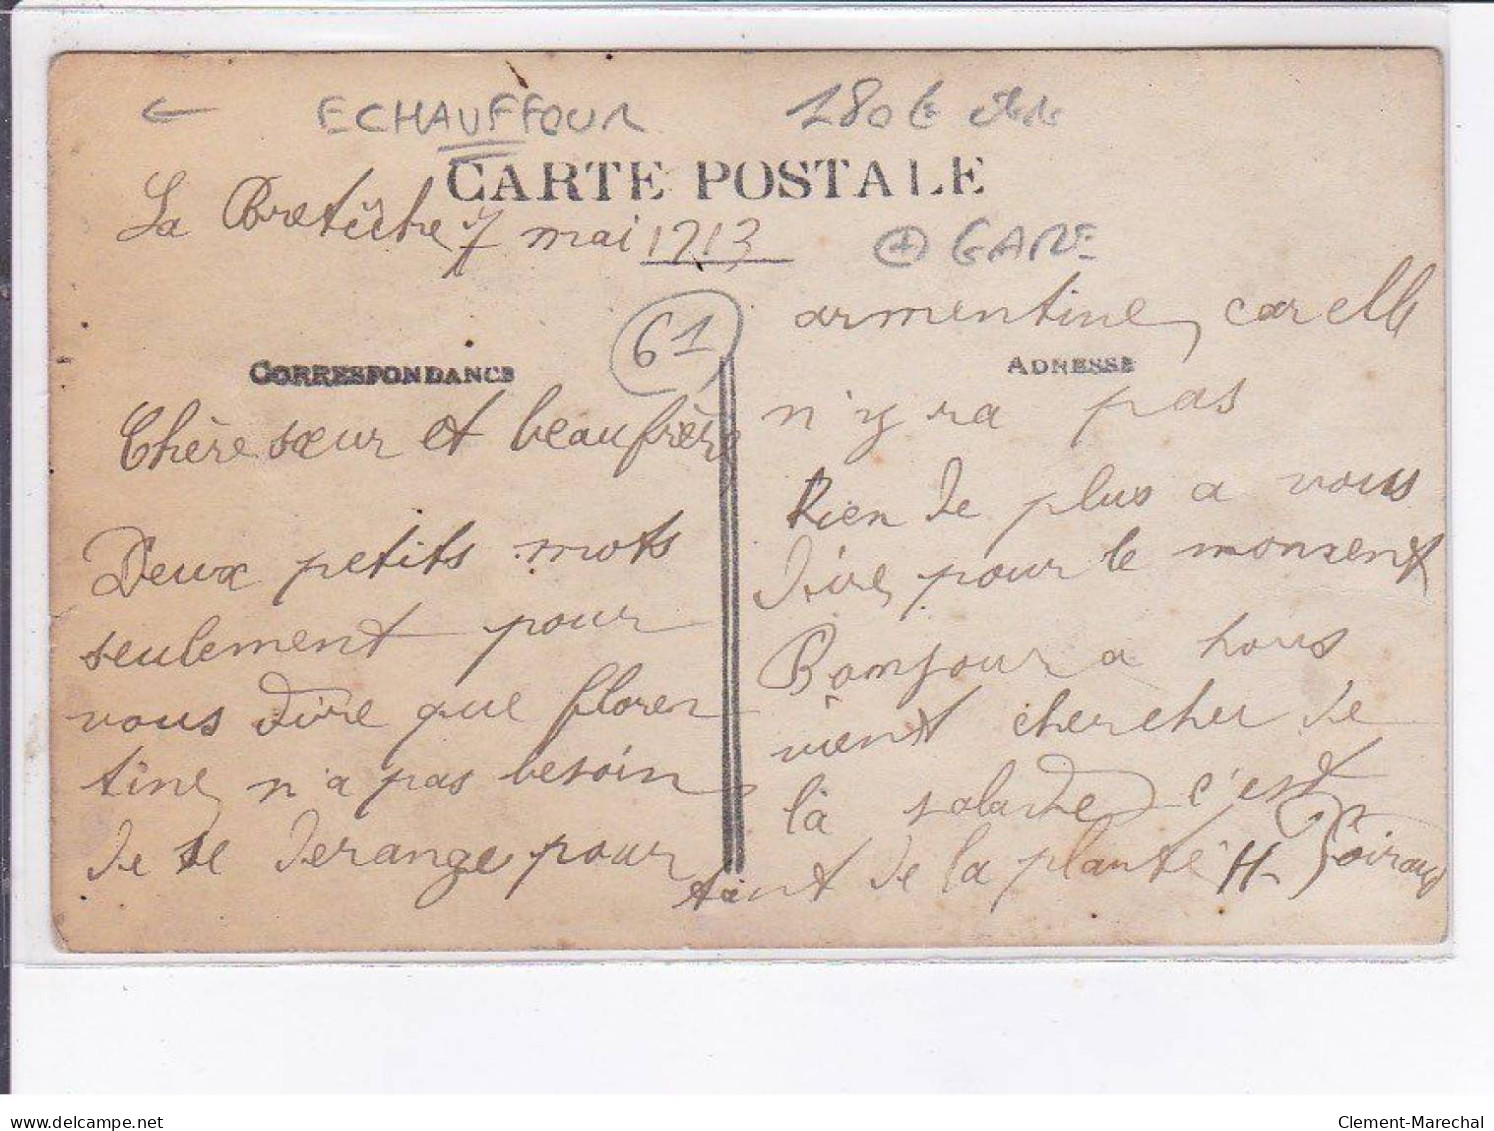 ← ECHAUFFOUR 180 €
CARTE POSTALE
La Bretêche 7 mai 1913
+ GARE
61
CORRESPONDANCE
Chère sœur et beaufrère
Deux petits mots
seulement pour
vous dire que floren
tine n'a pas besoin
de se deranger pour
ADRESSE
armentine, car elle
n'y ra pas
Rien de plus a vous
dire pour le moment
Bonjour a tous
vient chercher de
la salade c'est
tint de la planté H
delcampe.net
Clement-Marechal